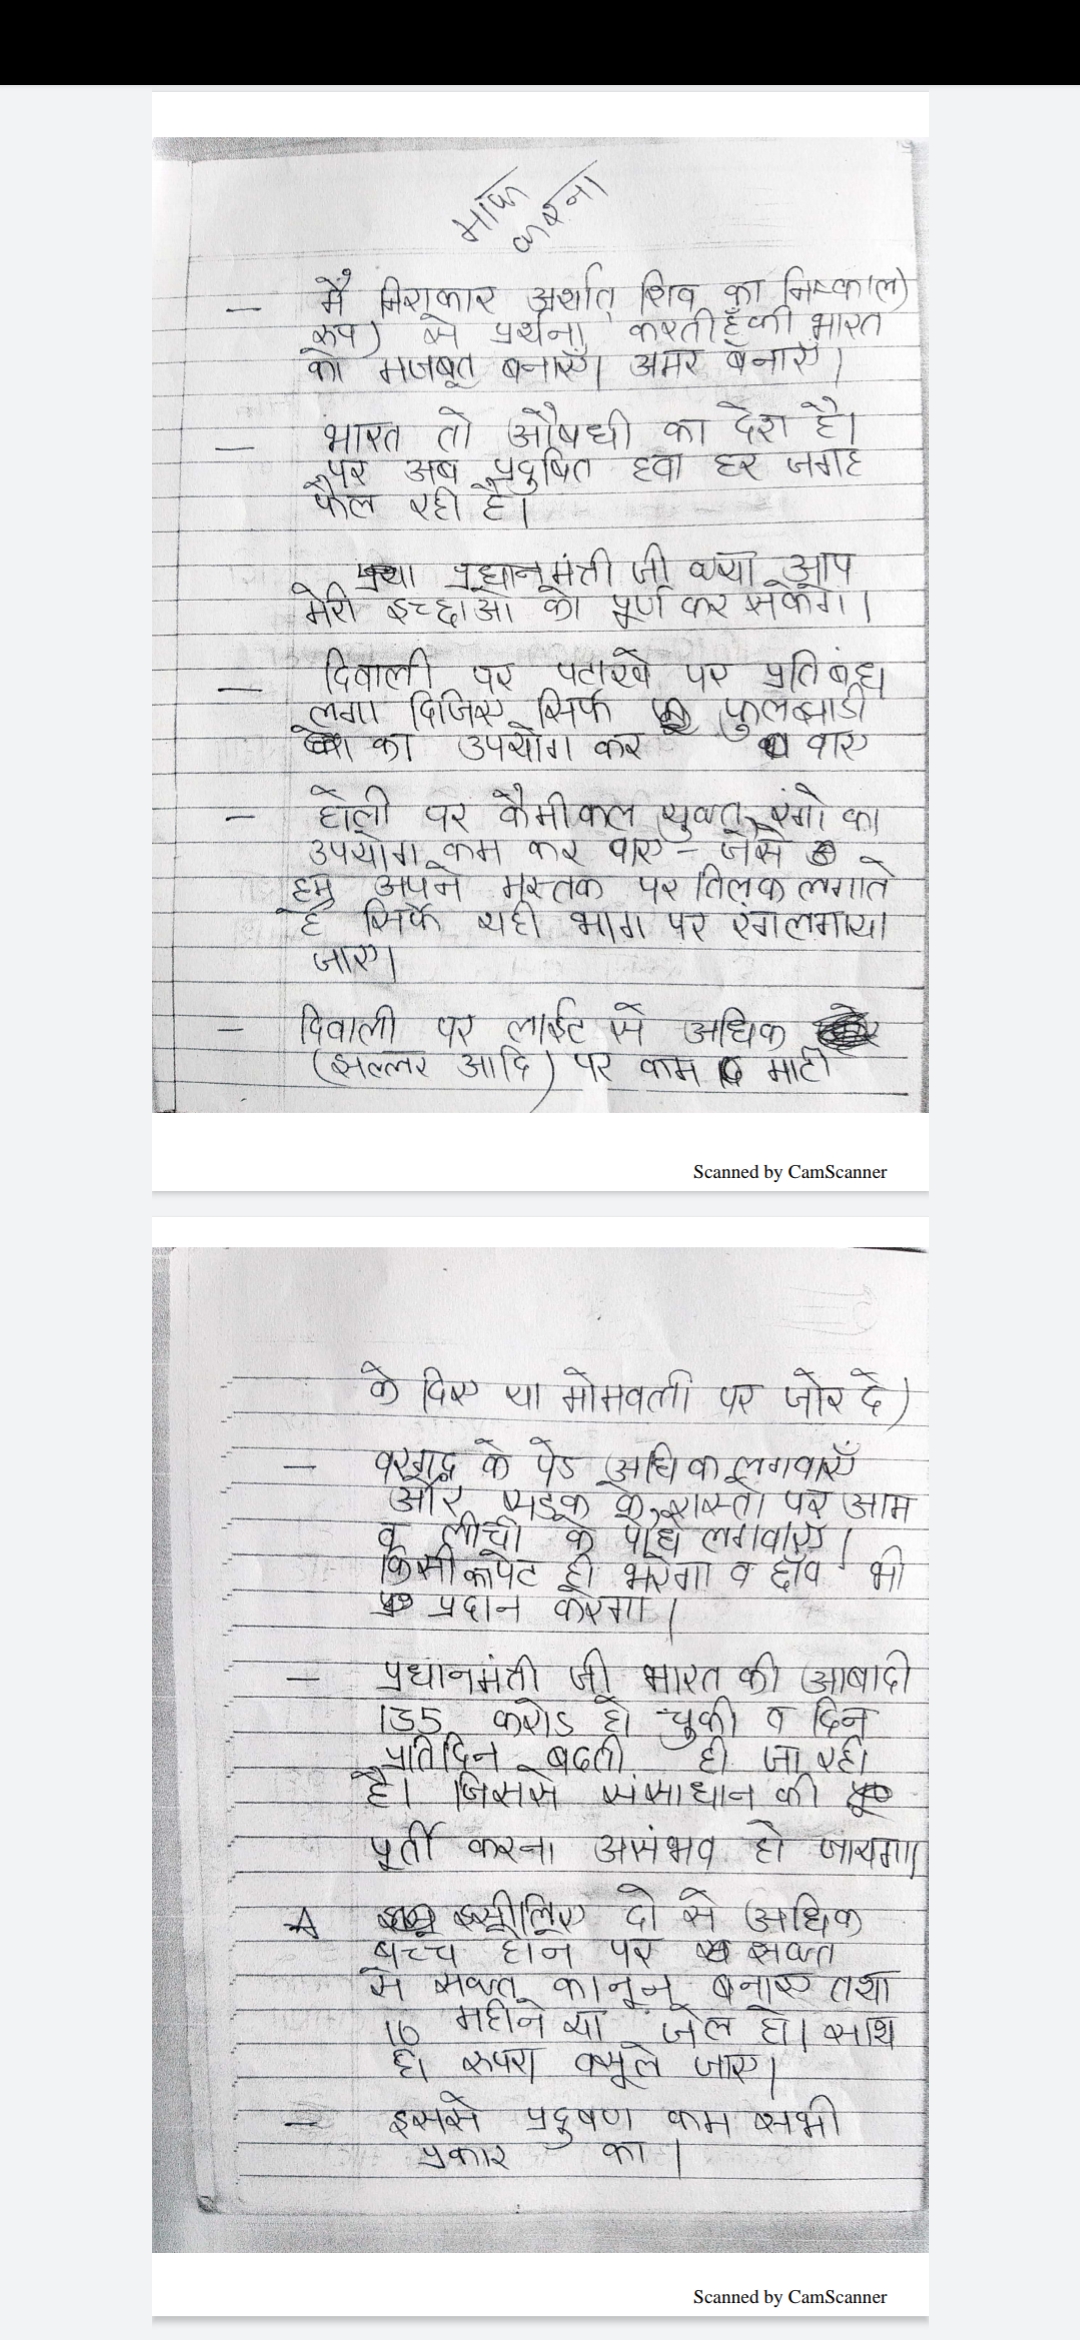 माफ
करना
— मैं निराकार अर्थात् शिव का निष्काल)
रूप) से प्रर्थना करती हूँ की भारत
को मजबूत बनाएँ। अमर बनाएँ।
— भारत तो औषधी का देश है।
पर अब प्रदुषित हवा हर जगह
फैल रही है।
प्रधानमंत्ती जी क्या आप
मेरी इच्छाओ को पूर्ण कर सकेंगे।
— दिवाली पर पटाखे पर प्रतिबंध
लगा दिजिए सिर्फ फुलझाडी
का उपयोग कर वाए
— होली पर कैमीकल युक्त रंगो का
उपयोग कम कर वाए - जैसे
हम अपने मस्तक पर तिलक लगाते
है सिर्फ यही भाग पर रंग लगाया
जाए।
— दिवाली पर लाईट से अधिक
(झल्लर आदि) पर कम माटी
Scanned by CamScanner
के दिए या मोमवत्ती पर जोर दे)
— वरगद के पेड अधिक लगवाएँ
और सडक के रास्तो पर आम
व लीची के पौधे लगवाएँ।
किसी का पेट ही भरेगा व छाँव भी
प्रदान करेगा।
— प्रधानमंत्ती जी भारत की आबादी
135 करोड हो चुकी व दिन
प्रतिदिन बढती ही जा रही
है। जिससे संसाधान की
पूर्ती करना असंभव हो जायगा।
इसीलिए दो से अधिक
बच्चे होने पर सक्त
से सक्त कानून बनाए तथा
10 महीने या जेल हो। साथ
ही रूपए वसूले जाए।
— इससे प्रदुषण कम सभी
प्रकार का।
Scanned by CamScanner